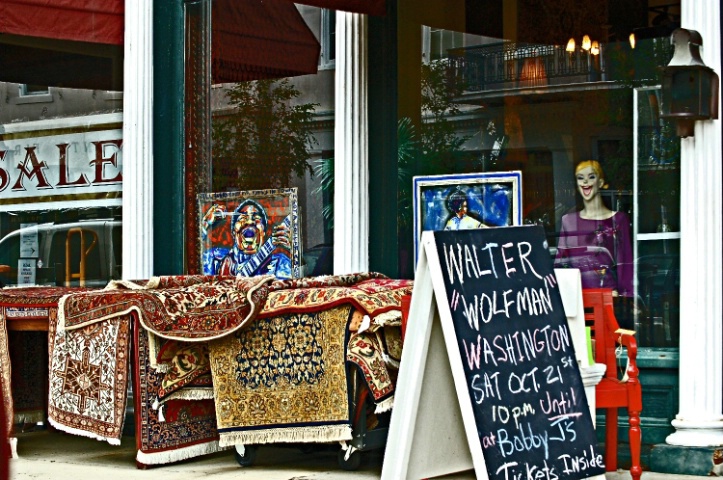 SALE
WALTER
"WOLFMAN"
WASHINGTON
SAT OCT. 21st
10 p.m. Until
at Bobby J'S
Tickets Inside